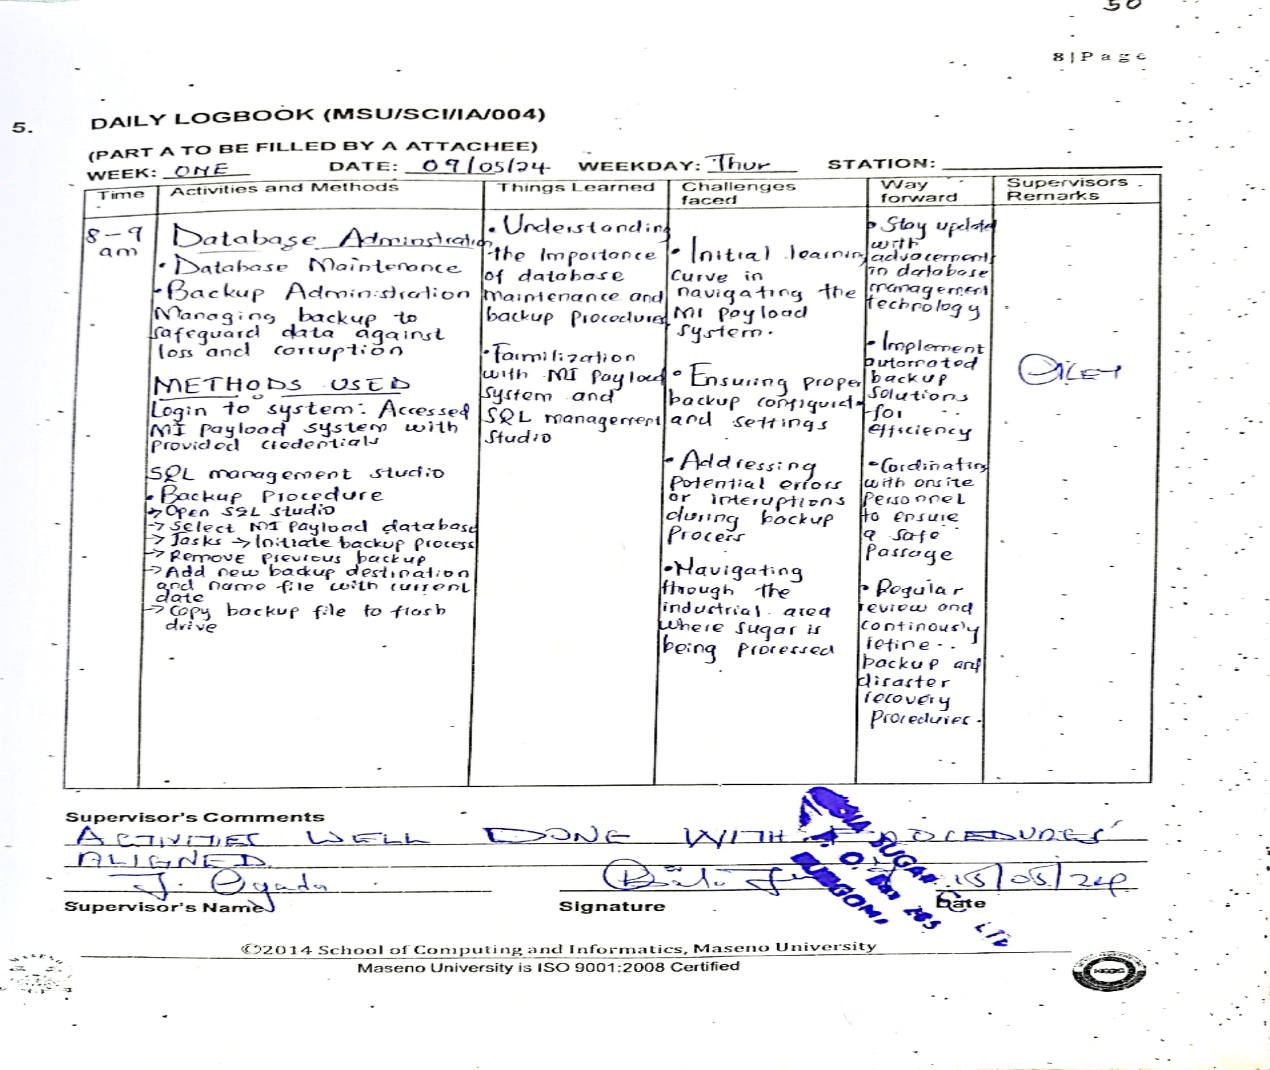 50
8 | P a g e
5.
DAILY LOGBOOK (MSU/SCI/IA/004)
(PART A TO BE FILLED BY A ATTACHEE)
WEEK: ONE DATE: 09/05/24 WEEKDAY: Thur STATION:
Time
Activities and Methods
Things Learned
Challenges
faced
Way
forward
Supervisors
Remarks
8-9
am
Database Adminstration
• Database Maintenance
• Backup Administration
Managing backup to
safeguard data against
loss and corruption
METHODS USED
Login to system: Accessed
MI Payload system with
Provided credentials
SQL management studio
• Backup Procedure
→ Open SQL Studio
→ Select MI Payload database
→ Tasks → Initiate backup process
→ Remove previous backup
→ Add new backup destination
and name file with current
date
→ Copy backup file to flash
drive
• Understanding
the Importance
of database
maintenance and
backup procedures
• Familization
with MI Payload
system and
SQL management
Studio
• Initial learning
curve in
navigating the
MI Payload
system.
• Ensuring proper
backup configurat-
and settings
• Addressing
Potential errors
or interuptions
during backup
Process
• Navigating
through the
industrial area
where sugar is
being processed
• Stay updated
with
advacements
in database
management
technology
• Implement
automated
backup
solutions
for
efficiency
• Cordinating
with onsite
Personnel
to ensure
a safe
Passage
• Regular
review and
continously
refine
backup and
disaster
recovery
Procedures.
Supervisor's Comments
ACTIVITIES WELL DONE WITH PROCEDURES
ALIGNED
J. Oyada
15/05/24
Supervisor's Name
Signature
Date
SUGAR
LTD
P. O. Box 285
BUNGOMA
©2014 School of Computing and Informatics, Maseno University
Maseno University is ISO 9001:2008 Certified